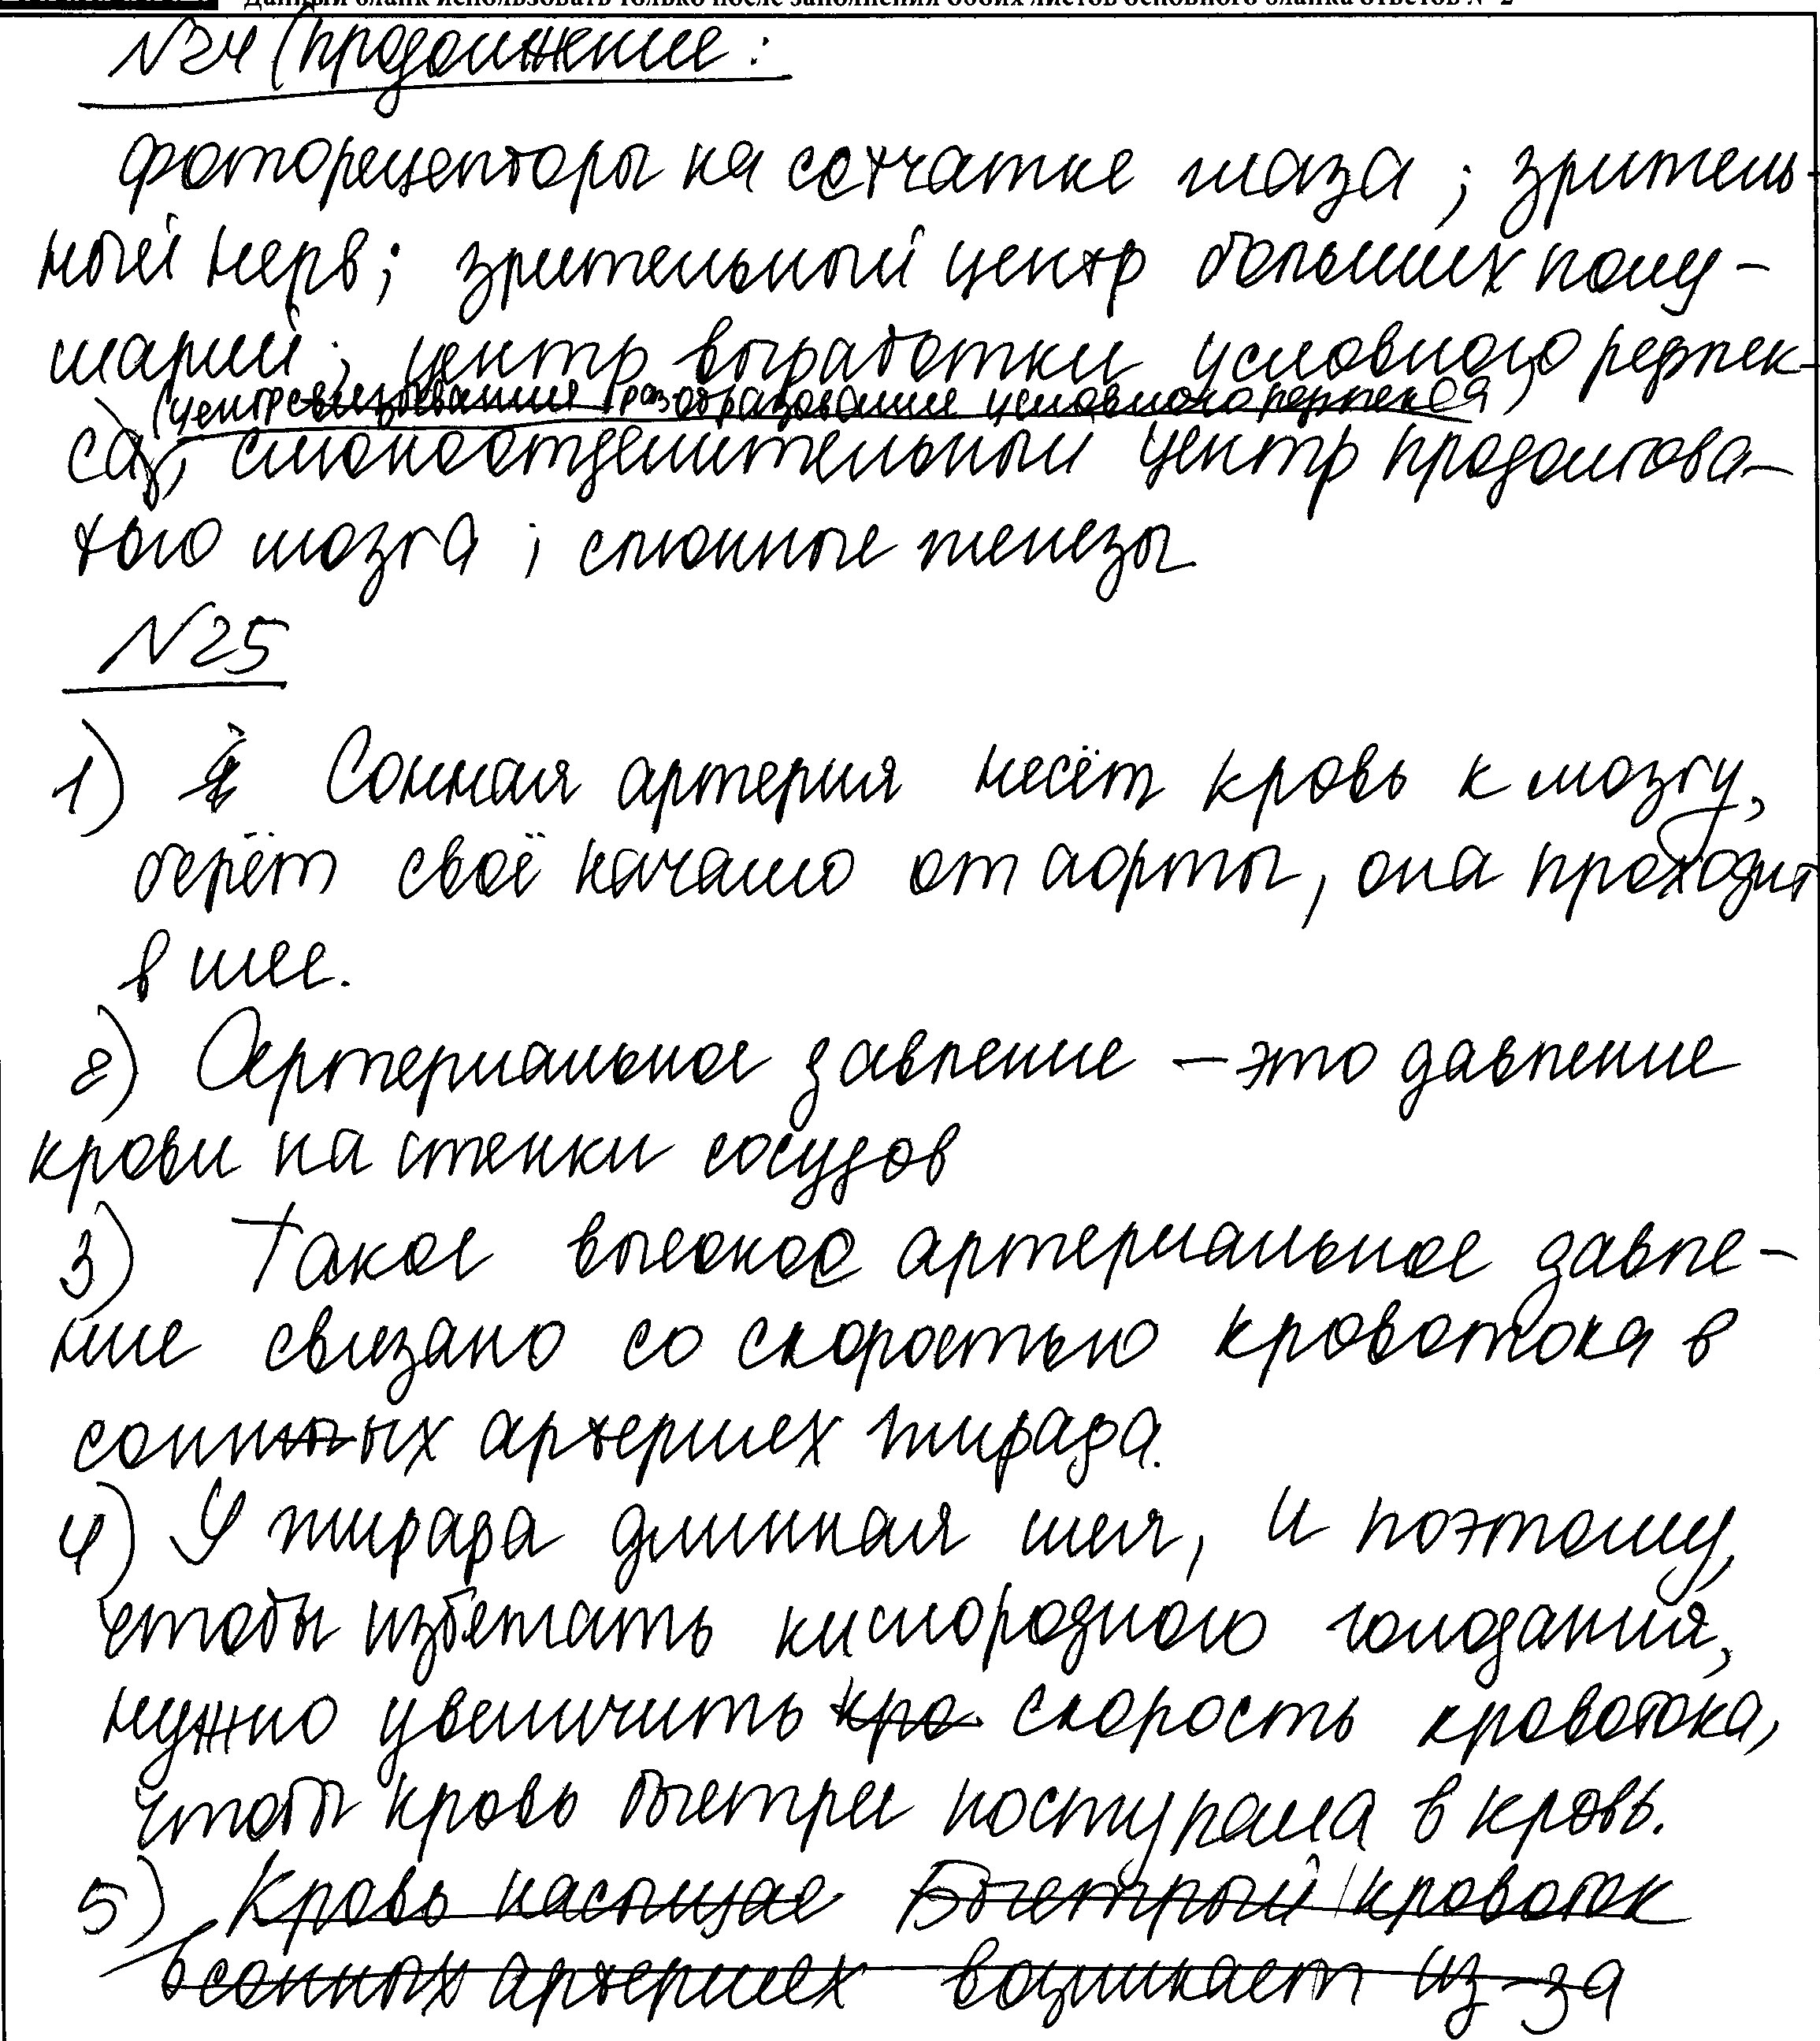 Данный бланк использовать только после заполнения обоих листов основного бланка ответов № 2
№24 (продолжение:
фоторецепторы на сетчатке глаза; зритель-
ный нерв; зрительный центр больших полу-
шарий; центр выработки условного рефлек-
(центр образование условного рефлекса)
са, слюноотделительный центр продолгова-
того мозга; слюнные железы
№25
1) Сонная артерия несёт кровь к мозгу,
берёт своё начало от аорты, она проходит
в шее.
2) Артериальное давление – это давление
крови на стенки сосудов
3) Такое высокое артериальное давле-
ние связано со скоростью кровотока в
сонных артериях жирафа.
4) У жирафа длинная шея, и поэтому,
чтобы избежать кислородного голодания,
нужно увеличить кро скорость кровотока,
чтобы кровь быстрее поступала в кровь.
5) Кровь насыщае Быстрый кровоток
в сонных артериях возникает из-за